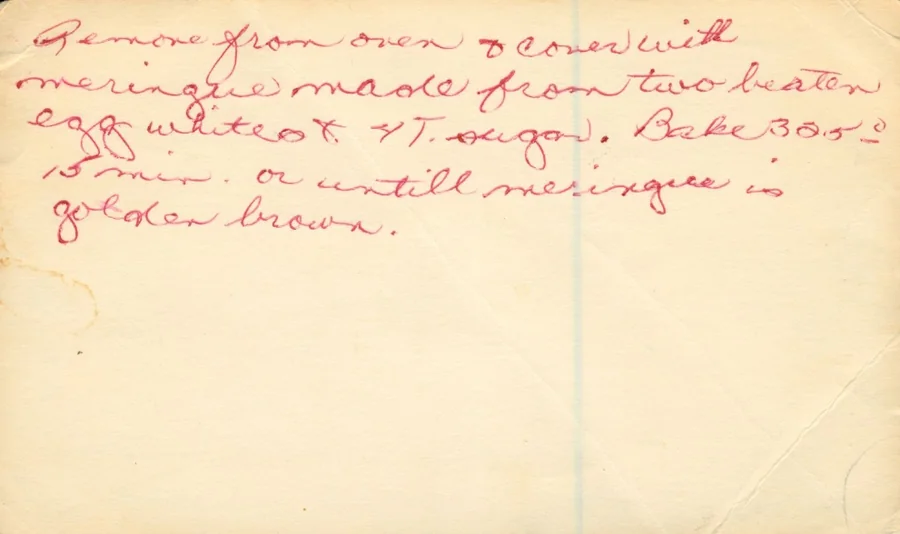 Remove from oven & cover with
meringue made from two beaten
egg whites & 4 T. sugar. Bake 325°
15 min. or untill meringue is
golden brown.